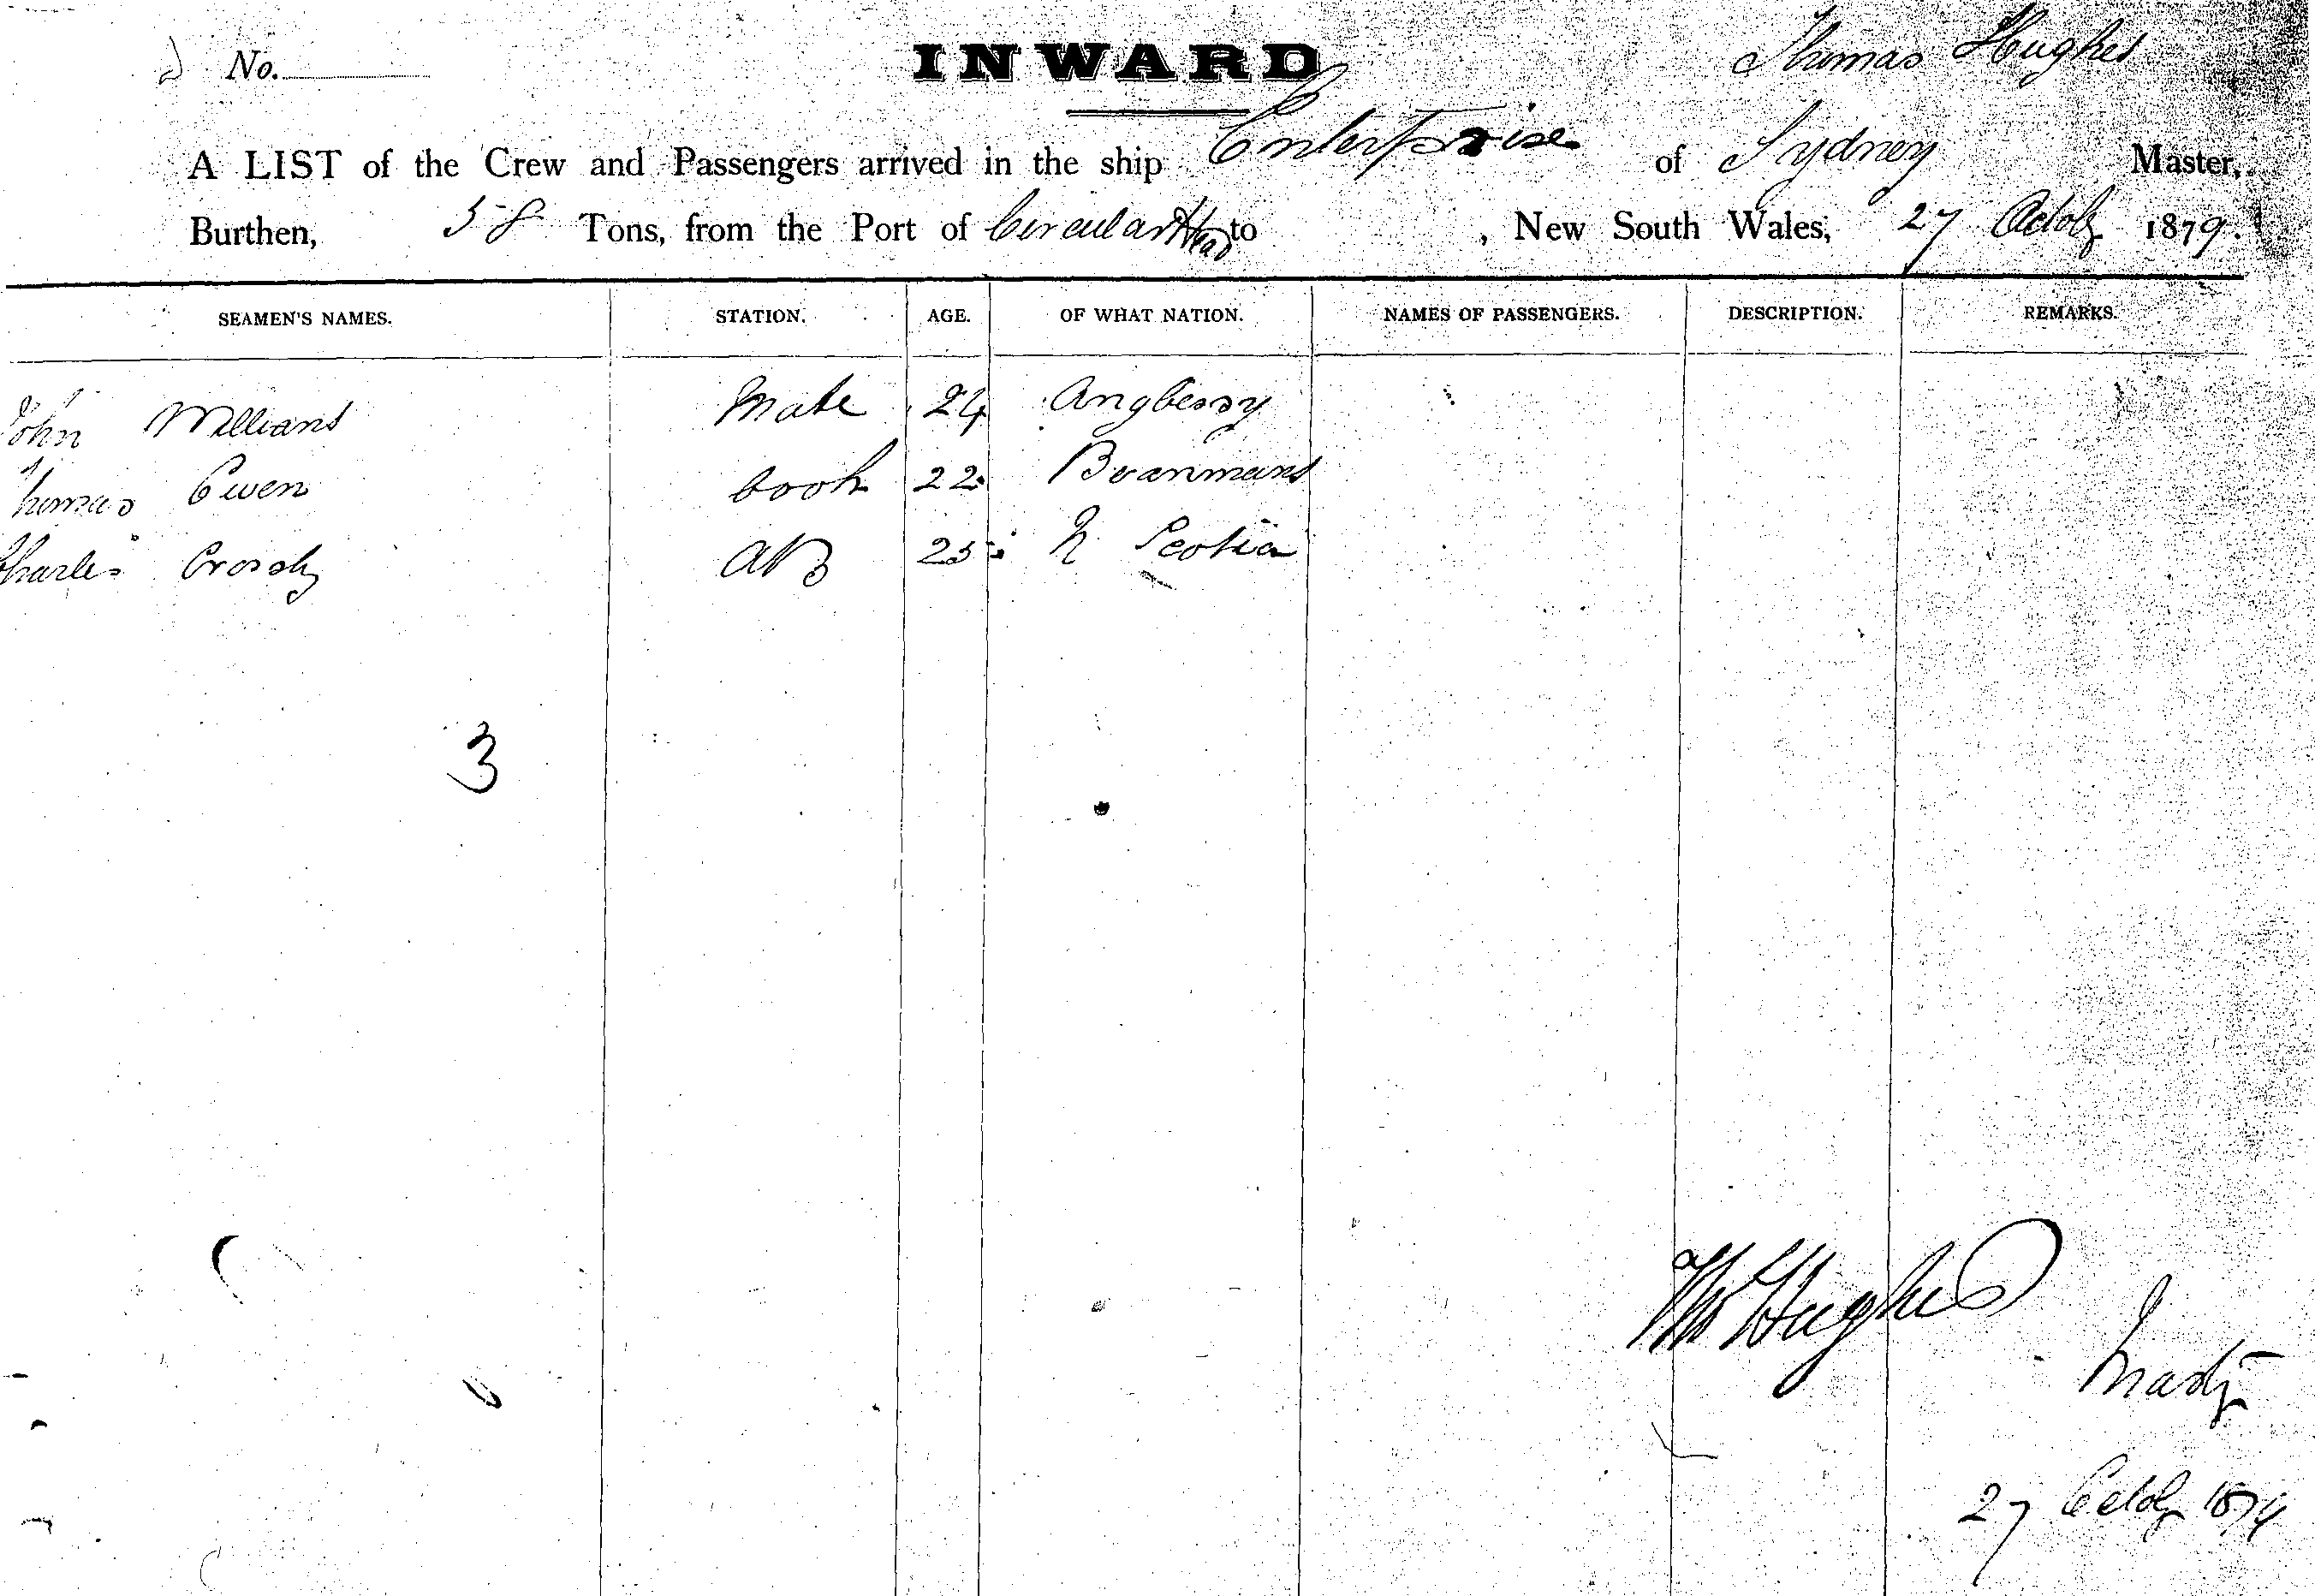 No. INWARD Thomas Hughes
A LIST of the Crew and Passengers arrived in the ship Enterprise of Sydney Master,
Burthen, 58 Tons, from the Port of Circular Head to , New South Wales, 27 Octob 1879.
SEAMEN'S NAMES. STATION. AGE. OF WHAT NATION. NAMES OF PASSENGERS. DESCRIPTION. REMARKS.
John Williams Mate 24 Anglessy
Thomas Owen Cook 22
Charles Crosby AB 25 N Scotia
3
Thos Hughes
Mastr
27 Octob 1879